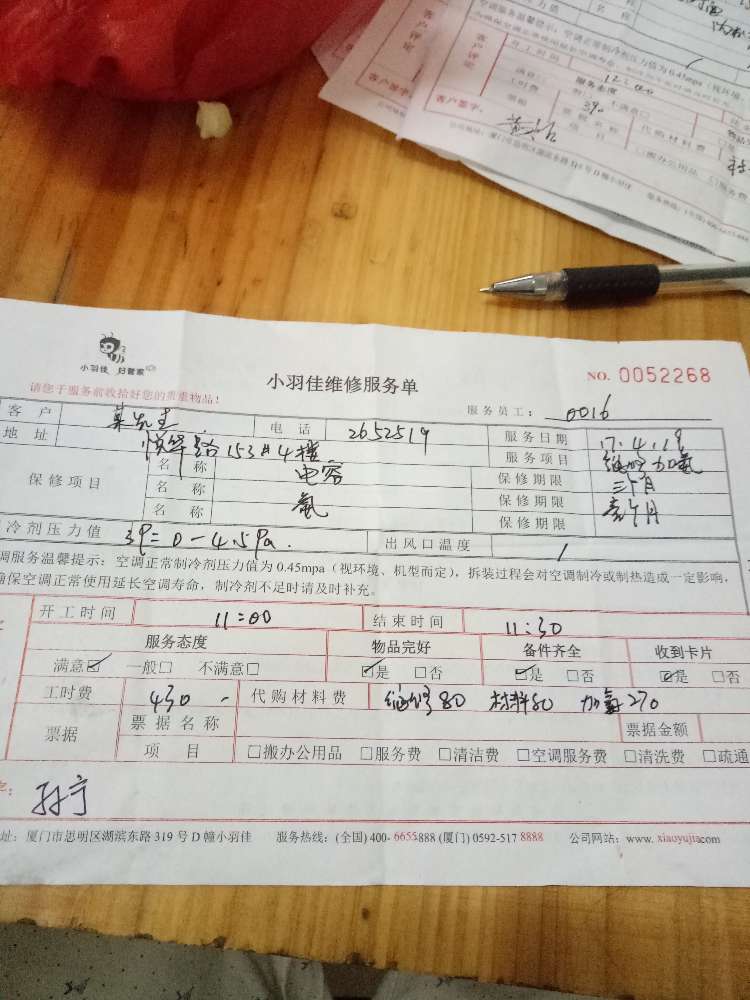 客户评定
空调服务温馨提示：空调正常制冷剂压力值为0.45mpa（视环境、
开工时间 12:00
服务态度
满意□
工时费 390
票据 票据名称 代购材料费
项目 □搬办公用品 □服务费
客户签字：
小羽佳 妇管家
请您于服务前收拾好您的贵重物品！
小羽佳维修服务单
NO. 0052268
服务员工： 0016
客户 电话 2652519 服务日期 17.4.19
地址 悦华路153#4楼 服务项目 维修加氟
保修项目 名称 电容 保修期限 三个月
名称 氟 保修期限 壹个月
名称 保修期限
冷剂压力值 出风口温度 /
调服务温馨提示：空调正常制冷剂压力值为0.45mpa（视环境、机型而定），拆装过程会对空调制冷或制热造成一定影响，
确保空调正常使用延长空调寿命，制冷剂不足时请及时补充。
开工时间 11:00 结束时间 11:30
服务态度 物品完好 备件齐全 收到卡片
满意☑ 一般□ 不满意□ ☑是 □否 ☑是 □否 ☑是 □否
工时费 430 - 代购材料费 维修80 材料80 加氟270
票据 票据名称 票据金额
项目 □搬办公用品 □服务费 □清洁费 □空调服务费 □清洗费 □疏通
孙宁
址：厦门市思明区湖滨东路319号D幢小羽佳 服务热线：(全国) 400-6655888 (厦门) 0592-517 8888 公司网站：www. xiaoyujia.com